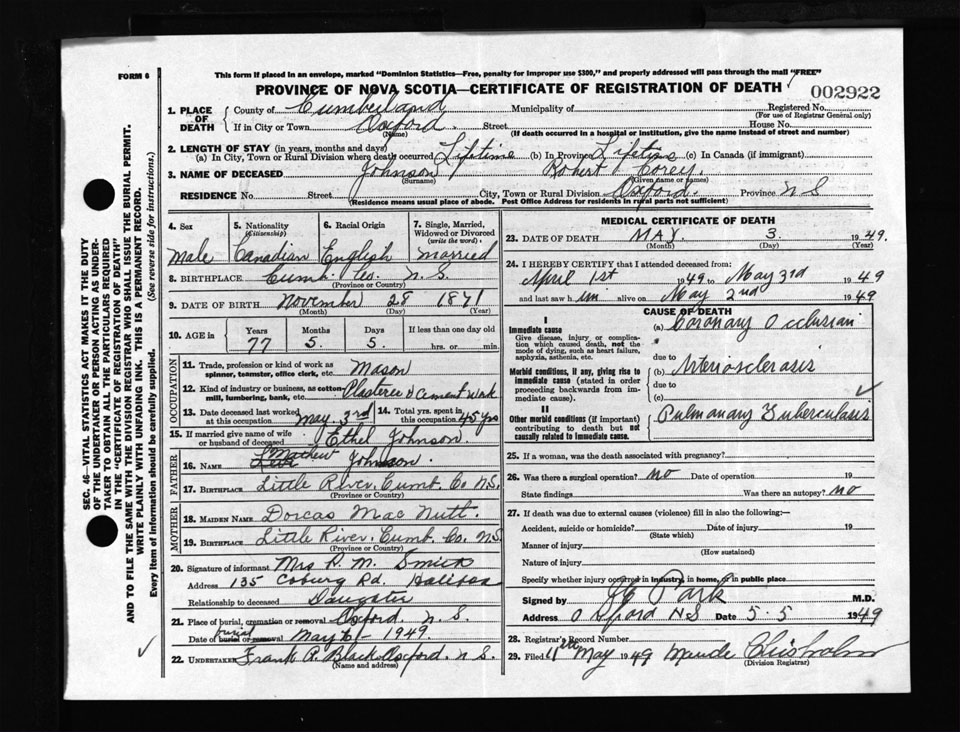 FORM 6
This form if placed in an envelope, marked "Dominion Statistics—Free, penalty for improper use $300," and properly addressed will pass through the mail "FREE"
PROVINCE OF NOVA SCOTIA—CERTIFICATE OF REGISTRATION OF DEATH
002922
1. PLACE OF DEATH County of Cumberland Municipality of Registered No.
(For use of Registrar General only)
If in City or Town Oxford. Street House No.
(Name) (If death occurred in a hospital or institution, give the name instead of street and number)
2. LENGTH OF STAY (in years, months and days)
(a) In City, Town or Rural Division where death occurred Lifetime (b) In Province Lifetime (c) In Canada (if immigrant)
3. NAME OF DECEASED Johnson Robert Corey.
(Surname) (Given name or names)
RESIDENCE No. Street City, Town or Rural Division Oxford. Province N S
(Residence means usual place of abode. Post Office Address for residents in rural parts not sufficient)
4. Sex 5. Nationality (Citizenship) 6. Racial Origin 7. Single, Married, Widowed or Divorced (write the word)
Male Canadian English Married
8. BIRTHPLACE Cumb. Co. N. S.
(Province or Country)
9. DATE OF BIRTH November 28 1871
(Month) (Day) (Year)
10. AGE in Years Months Days If less than one day old
77 5. 5. hrs. or min.
OCCUPATION
11. Trade, profession or kind of work as spinner, teamster, office clerk, etc. Mason
12. Kind of industry or business, as cotton-mill, lumbering, bank, etc. Plasterer & Cement Work
13. Date deceased last worked at this occupation May. 3rd 14. Total yrs. spent in this occupation 45 yrs
15. If married give name of wife or husband of deceased Ethel Johnson.
FATHER
16. NAME Mathew Johnson.
17. BIRTHPLACE Little River. Cumb. Co N.S.
(Province or Country)
MOTHER
18. MAIDEN NAME Dorcas Mac Nutt.
19. BIRTHPLACE Little River. Cumb. Co. N.S
(Province or Country)
20. Signature of informant Mrs R. M. Smith
Address 135 Coburg Rd. Halifax
Relationship to deceased Daughter
21. Place of burial, cremation or removal Oxford. N. S.
Date of burial or removal burial May 6 - 1949
22. UNDERTAKER Frank P. Black Oxford. N S.
(Name and address)
MEDICAL CERTIFICATE OF DEATH
23. DATE OF DEATH MAY. 3. 1949.
(Month) (Day) (Year)
24. I HEREBY CERTIFY that I attended deceased from:
April 1st 1949 to May 3rd 1949
and last saw h im alive on May 2nd 1949
CAUSE OF DEATH
I
Immediate cause
Give disease, injury, or complication which caused death, not the mode of dying, such as heart failure, asphyxia, asthenia, etc.
(a) Coronary Occlusion
due to
Morbid conditions, if any, giving rise to immediate cause (stated in order proceeding backwards from immediate cause).
(b) Arteriosclerosis
due to
(c)
II
Other morbid conditions (if important) contributing to death but not causally related to immediate cause.
Pulmonary Tuberculosis
25. If a woman, was the death associated with pregnancy?
26. Was there a surgical operation? No Date of operation 19
State findings Was there an autopsy? No
27. If death was due to external causes (violence) fill in also the following:—
Accident, suicide or homicide? Date of injury 19
(State which)
Manner of injury
(How sustained)
Nature of injury
Specify whether injury occurred in industry, in home, or in public place
Signed by Park M.D.
Address Oxford NS Date 5.5 1949
28. Registrar's Record Number
29. Filed 11th May 1949 Maude Chisholm
(Division Registrar)
SEC. 46—VITAL STATISTICS ACT MAKES IT THE DUTY
OF THE UNDERTAKER OR PERSON ACTING AS UNDER-
TAKER TO OBTAIN ALL THE PARTICULARS REQUIRED
IN THE "CERTIFICATE OF REGISTRATION OF DEATH"
AND TO FILE THE SAME WITH THE DIVISION REGISTRAR WHO SHALL ISSUE THE BURIAL PERMIT.
WRITE PLAINLY WITH UNFADING INK. THIS IS A PERMANENT RECORD.
Every item of information should be carefully supplied. (See reverse side for instructions.)